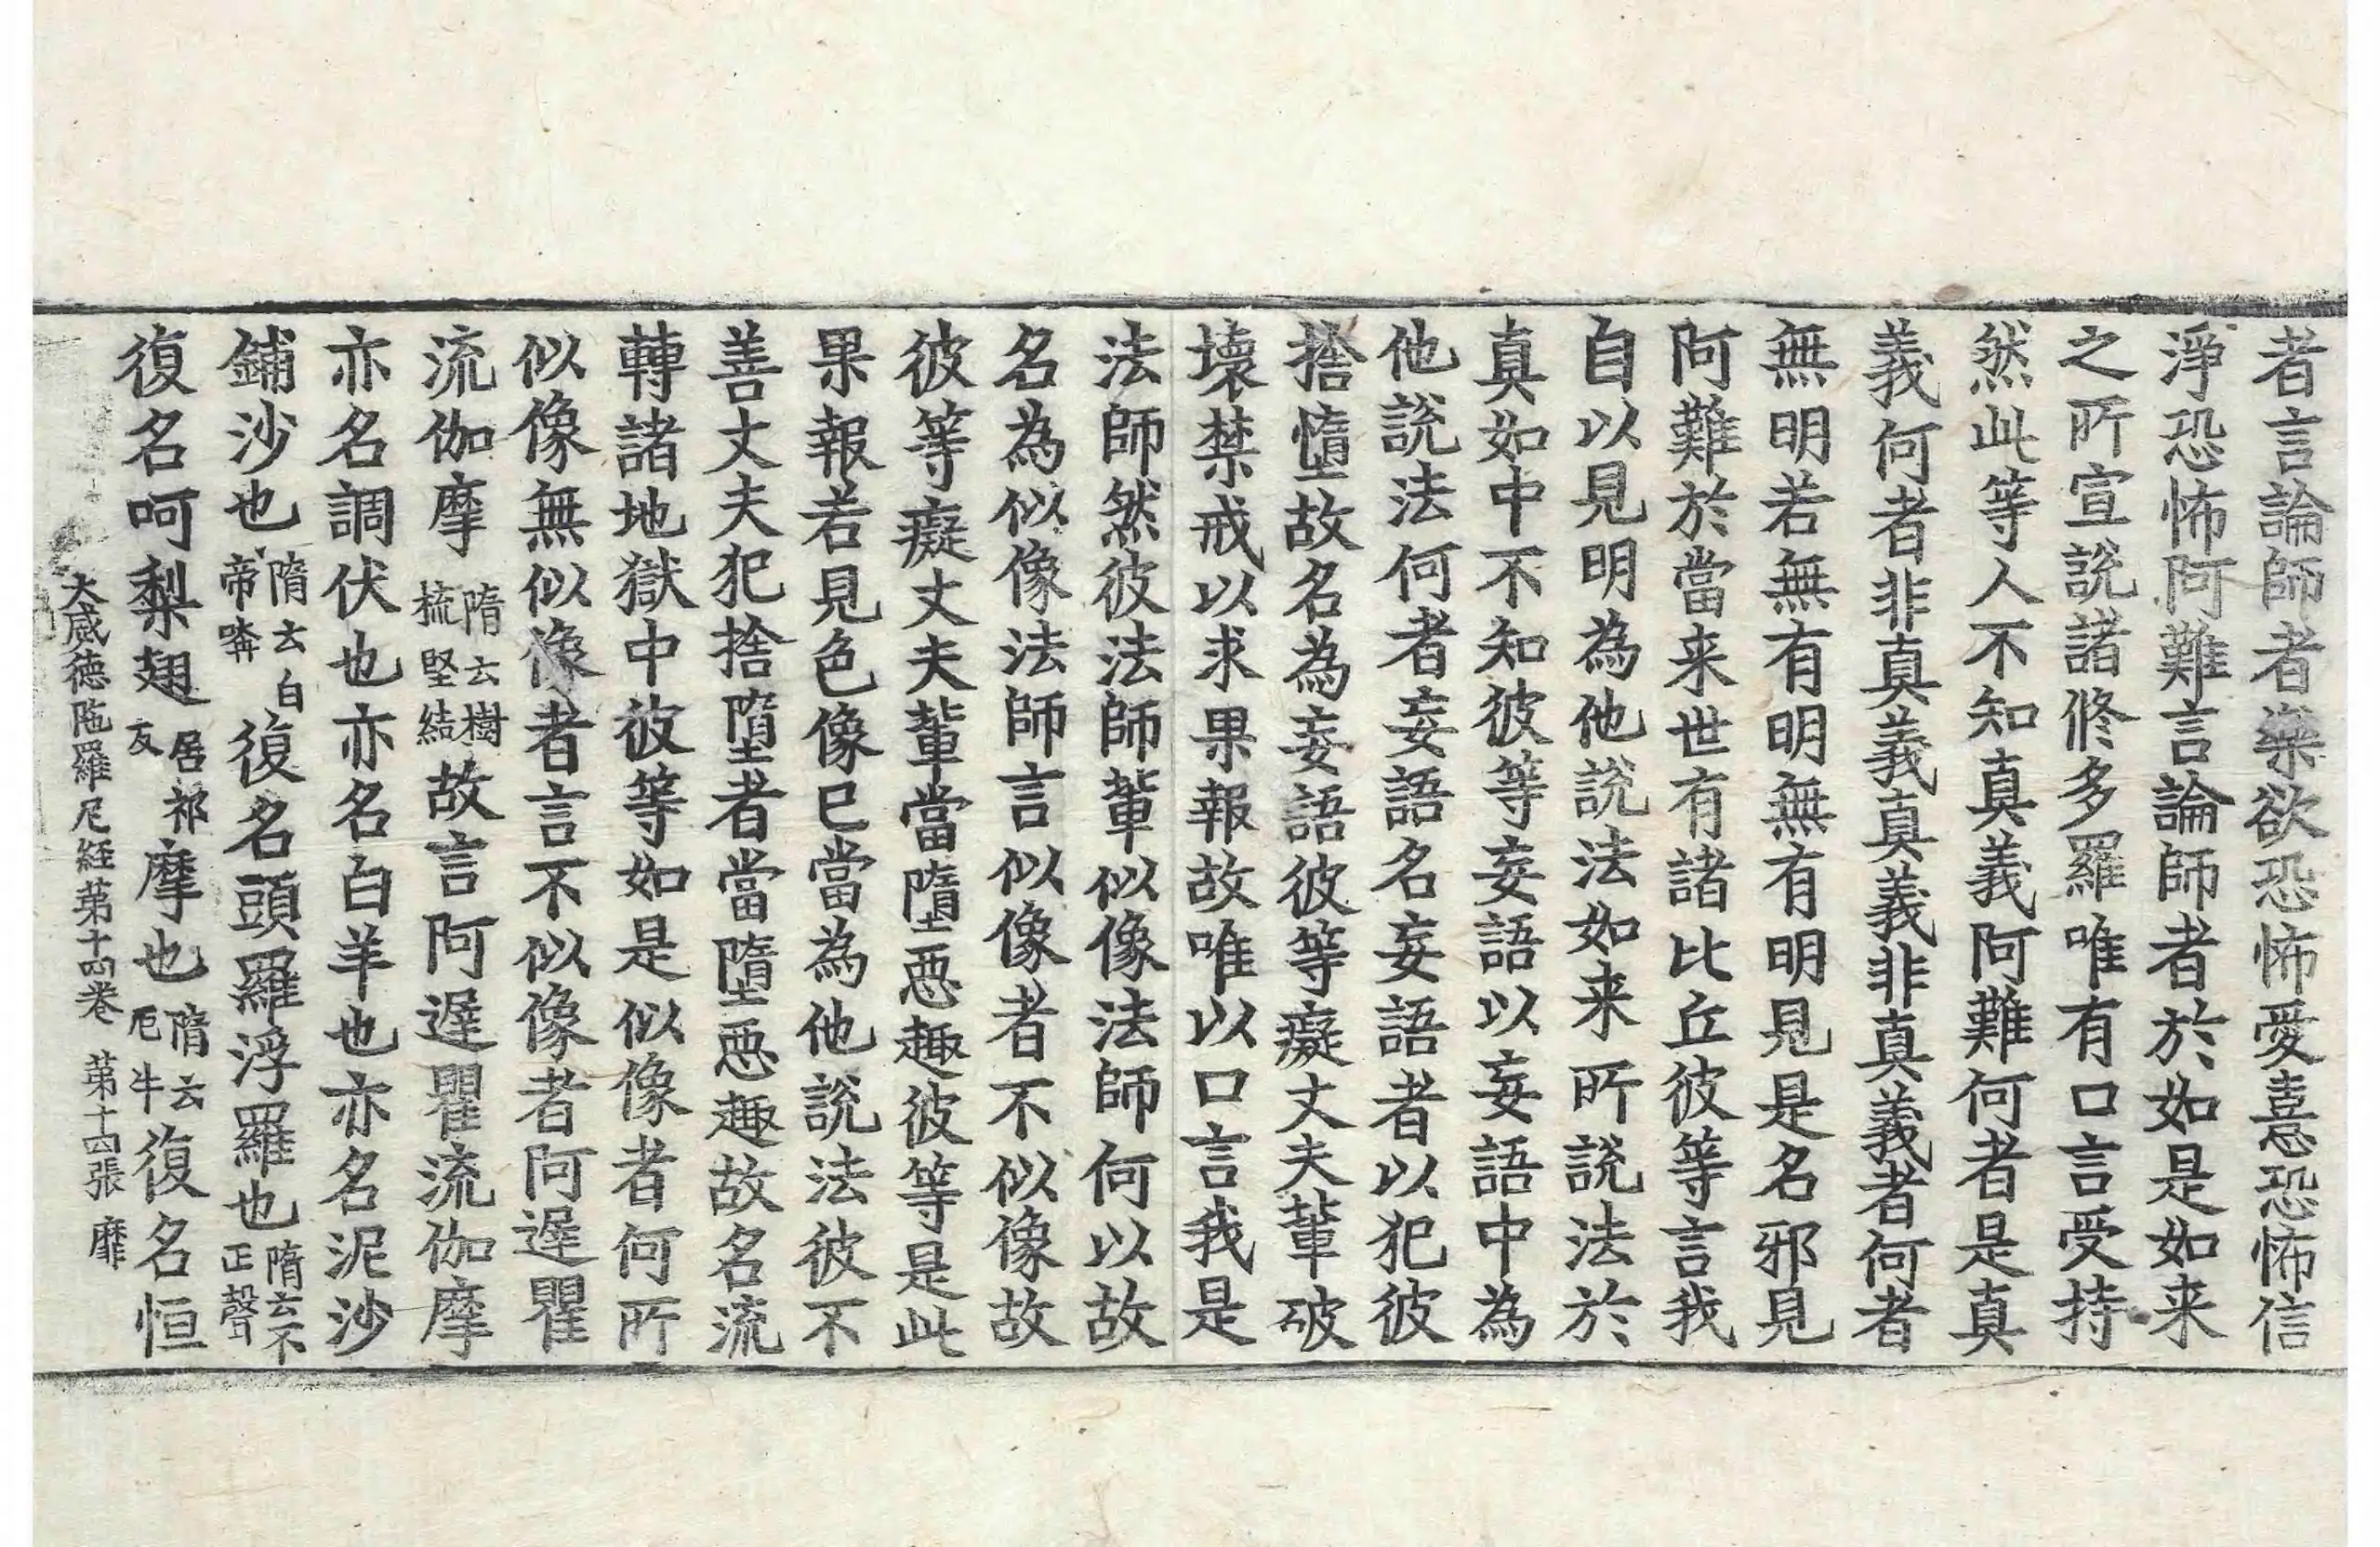 者言論師者樂欲恐怖愛憙恐怖信
淨恐怖阿難言論師者於如是如来
之所宣說諸修多羅唯有口言受持
然此等人不知真義阿難何者是真
義何者非真義真義非真義者何者
無明若無有明無有明見是名邪見
阿難於當来世有諸比丘彼等言我
自以見明為他說法如来所說法於
真如中不知彼等妄語以妄語中為
他說法何者妄語名妄語者以犯彼
捨墮故名為妄語彼等癡丈夫輩破
壞禁戒以求果報故唯以口言我是
法師然彼法師輩似像法師何以故
名為似像法師言似像者不似像故
彼等癡丈夫輩當墮惡趣彼等是此
果報若見色像已當為他說法彼不
善丈夫犯捨墮者當墮惡趣故名流
轉諸地獄中彼等如是似像者何所
似像無似像者言不似像者阿遲瞿
流伽摩隋云樹梳堅結故言阿遲瞿流伽摩
亦名調伏也亦名白羊也亦名泥沙
鋪沙也隋云白帝嗾復名頭羅浮羅也隋云不正聲
復名呵梨翅居祁反摩也隋云厄牛復名恒
大威德陁羅尼経第十四卷 第十四張 靡